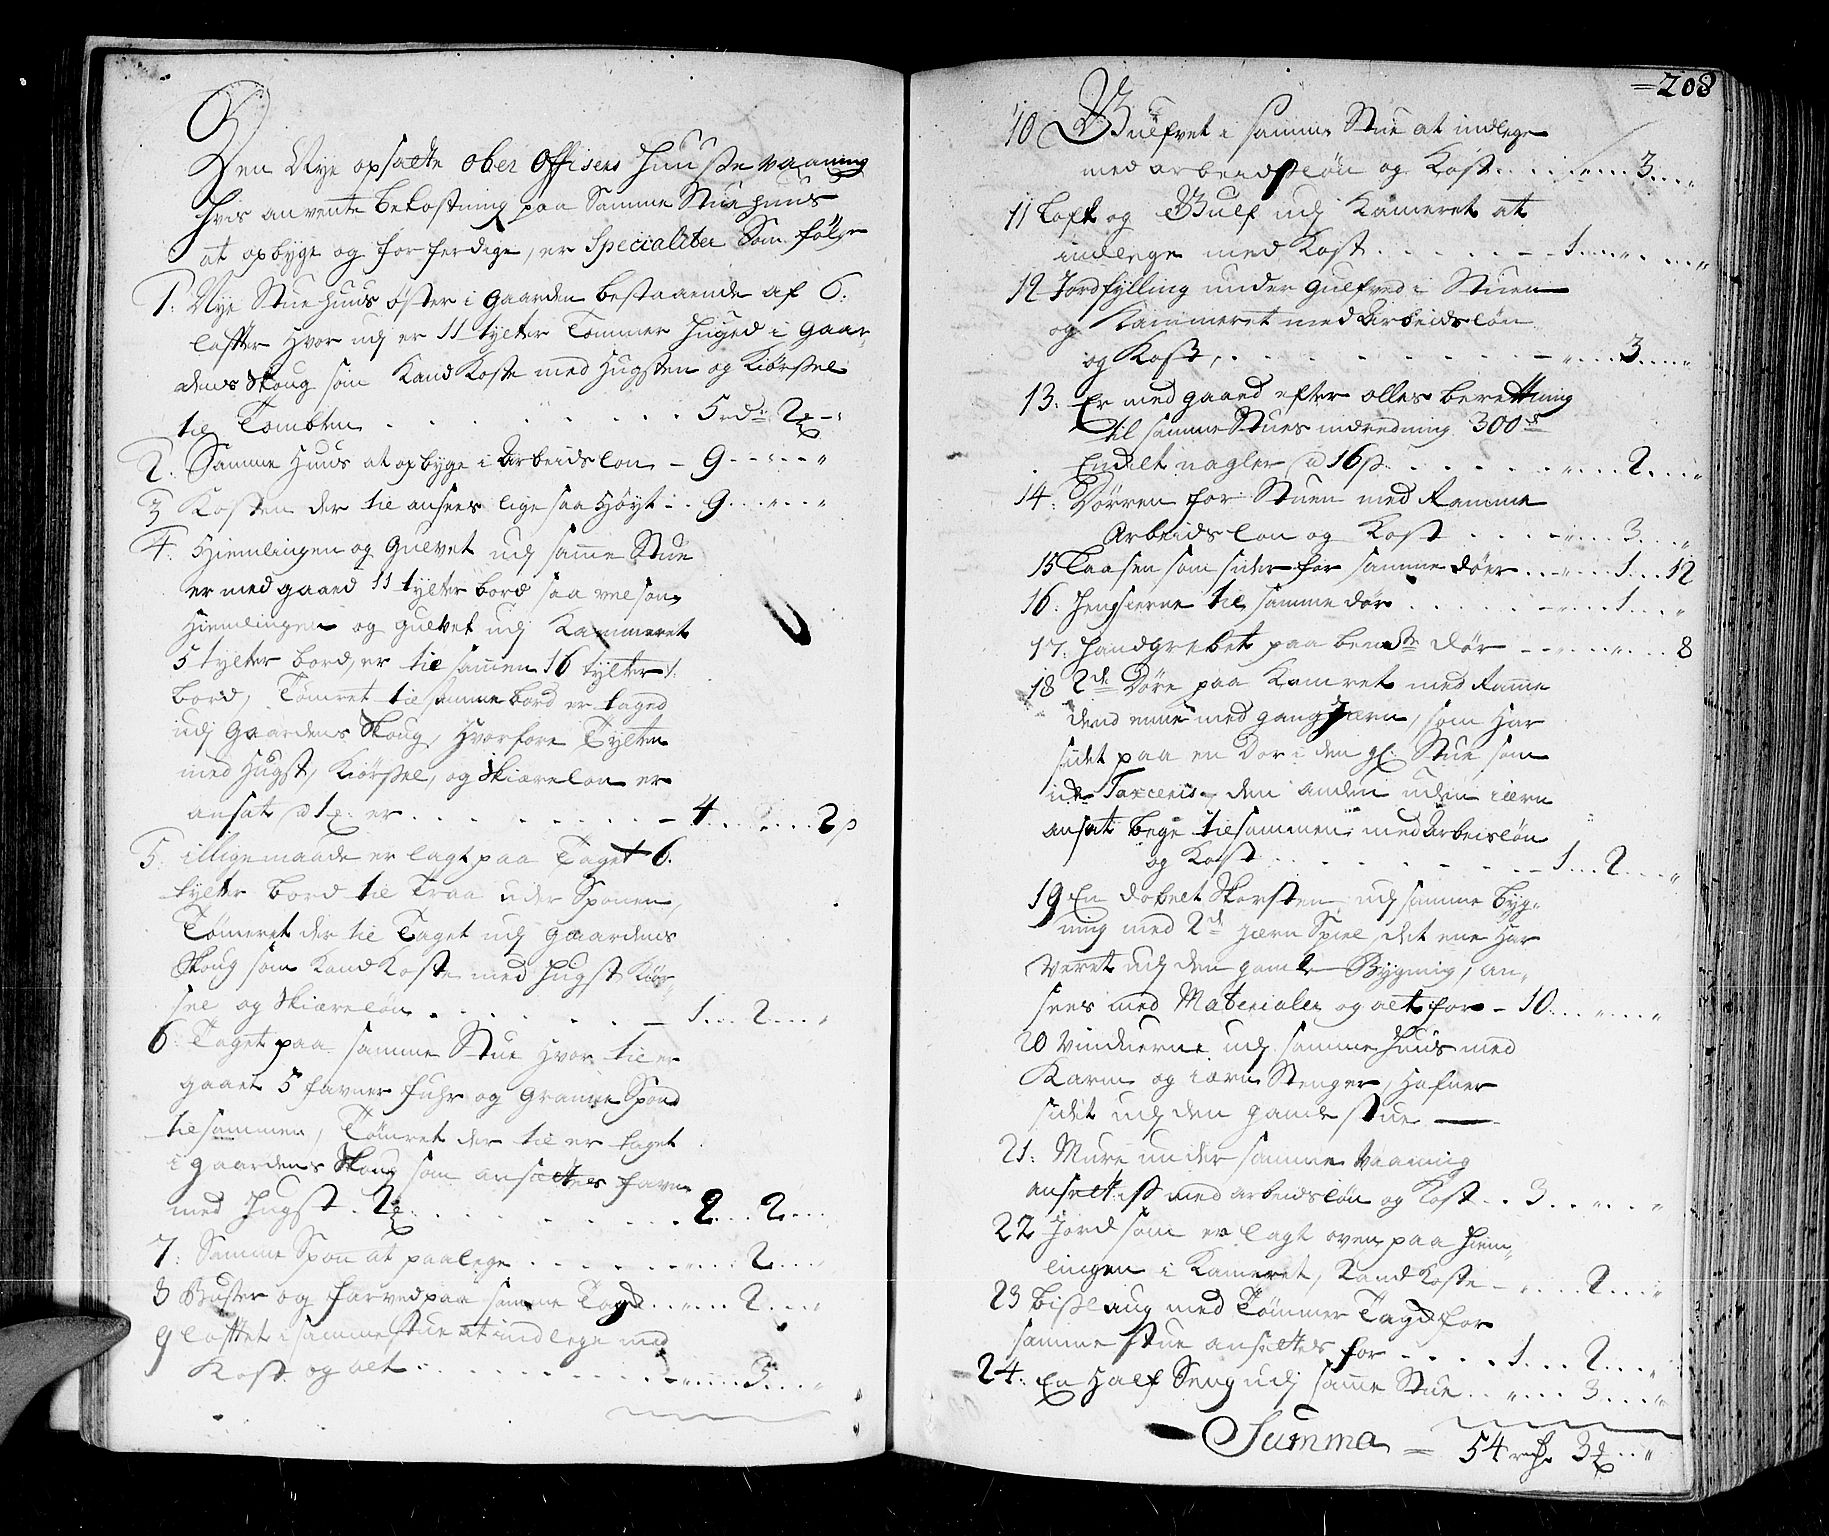 Den Nye opsatte ober Offisers Huuse vaaning
hvis anvente bekostning paa Samme Stue huus
at opbyge og forferdige, er Specialiter Som følger
1. Nye Stue huus øster i gaarden bestaaende af 6.
laffter hvor udj er 11 tylter Tømmer huged i gaar-
dens Skoug som Kand Koste med Hugsten og Kiørsel
til Tombten . . . . . . . 5 rd 2
2. Samme Huus at opbyge i Arbeidslon - 9 - - " - - "
3 Kosten der til ansees lige saa Høyt - 9 - - " - - "
4. Hiemlingen og Gulvet udj samme Stue
er med gaaed 11 tylter bord saa vel som
Hiemlingen og gulvet udj Kammeret
5 tylter bord, er til sammen 16 tylter
bord, Tømret til samme bord er taged
udj Gaardens Skoug, Hvorfore Tylten
med Hugst, Kiørsel, og Skiærelon er
ansat a 1 er . . . . . . - 4 . . . . 2
5. illigemaade er lagt paa Taget 6.
tylter bord til Traa under Sponen,
Tømeret der til Taget udj gaardens
Skoug som Kand Koste med Hugst Kiør-
sel og Skiæreløn . . . . . - 1 . . . 2 . . . "
6. Taget paa samme Stue Hvor til er
gaaet 5 favner fuhr og Granne Spond
tilsammen, Tømret der til er taget
i gaardens Skoug som ansættes favn
med Hugst . 2 . . . . . . . 2 . . . 2 . . .
7. Samme Spon at paalege . . . . . . " . . . 2 . . .
8 Buster og Farved paa samme Tag . . . " . . . 2 . . . "
9 loftet i samme stue at indlege med
Kost og alt . . . . . . . . . " . . . 5 . . . "
=208
10 Gulfvet i samme Stue at indlege
med arbeidsløn og Kost . . . . " . . . 3 . . . "
11 Loft og Gulf udj Kameret at
indlege med Kost . . . . . - 1 . . . " . . . "
12 Jordfylling under gulfved i Stuen
og Kammeret med Arbeidsløn
og Kost, . . . . . . . . - " . . . 3 . . . "
13. Er med gaaed efter olles berettning
til samme Stues indredning 300
Endelt nagler a 16 s. . . . . . " . . . 2 . . . "
14. Dørren for Stuen med Ramme
Arbeidslon og Kost . . . . " . . . 3 . . . "
15 Laasen som sider for samme dør . . " . . . 1 . . . 12
16. Hengsierne til samme dør . . . . . - " . . . 1 . . . "
17. Handgrebet paa bende dør - - " - - " . . . 8
18 2de Døre paa Kamret med Ramme
dend enne med gang Jærn, som har
sidet paa en Dør i den gl. Stue som
Taxceris, den anden uden iærn
ansat bege tilsammen med Arbeisløn
og Kost . . . . . . . - - 1 . . . 2 . . . "
19 En dobelt Skorsten udj samme byg-
ning med 2de Jærn Spiel, det ene Har
Veret udj den gamle Bygning, an-
sees med Materialer og alt for - 10 . . . " . . . "
20 Vinduerne udj samme Huus med
Karm og iærn Stenger, Hafver
sidet udj den gamle stue —
21. Mure under samme Vaaning
med arbeidsløn og Kost . . 3 . . . " . . . "
22 Jord som er lagt oven paa Hiem-
lingen i Kameret, Kand Koste - " . . . 2 . . . "
23 Bislaug med Tømmer Tagd for
samme stue ansættes for . . . . 1 . . . 2 . . . "
24. En Half Seng udj samme Stue . . " . . . 3 . . . "
Summa = 54 3 . . . "